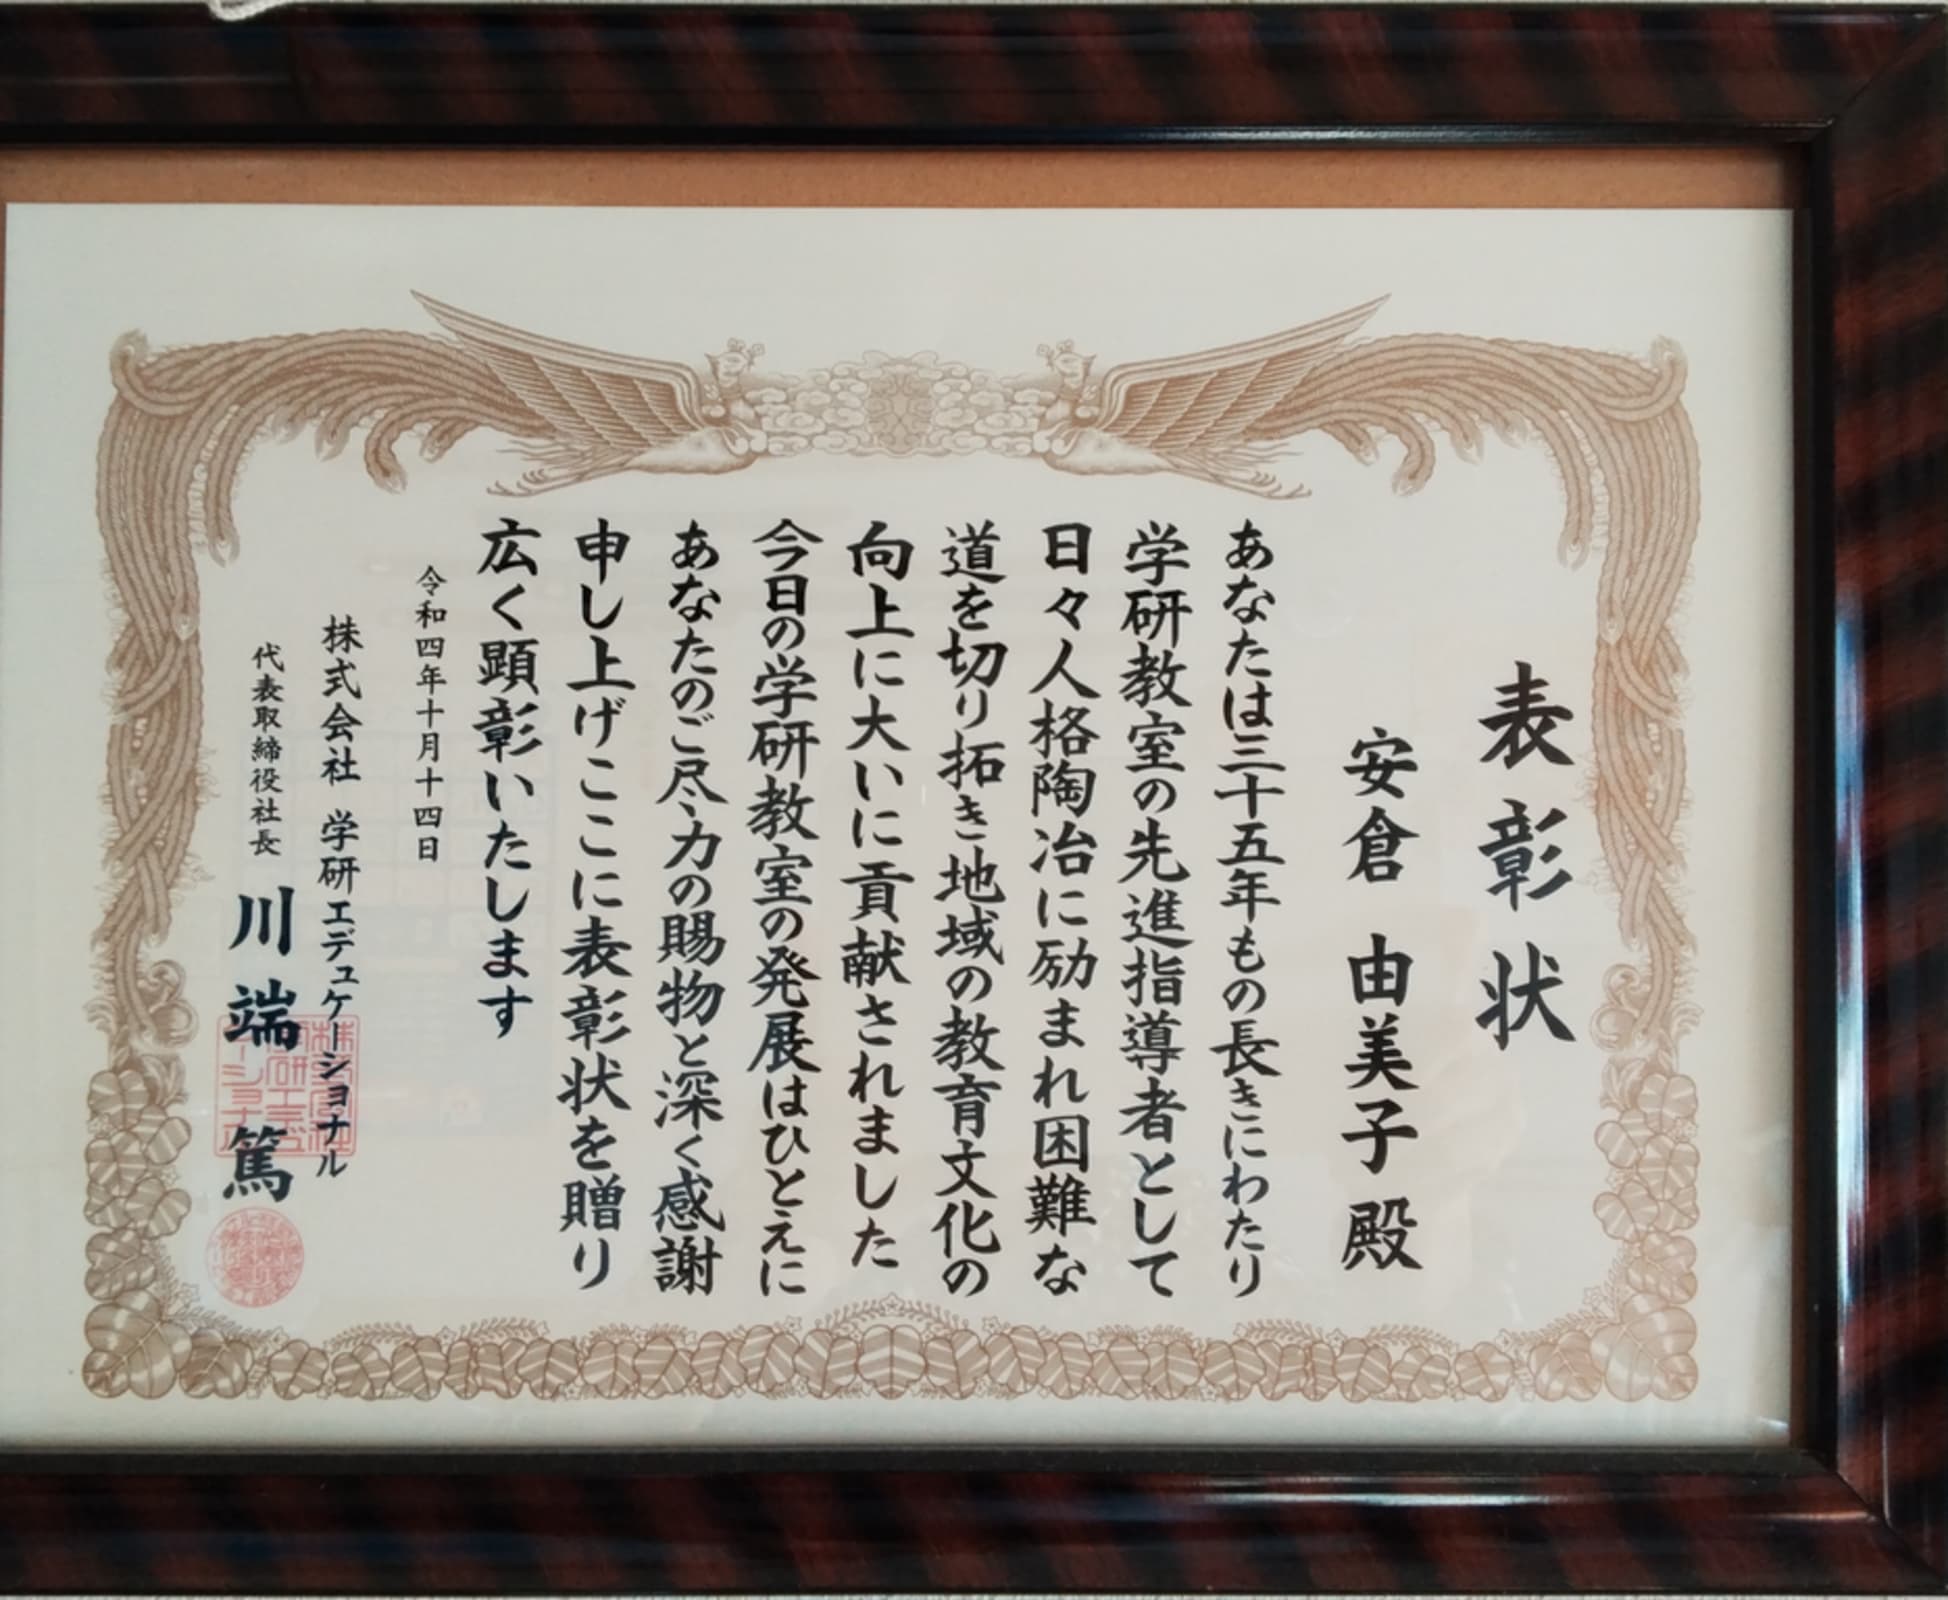 表彰状
安倉 由美子 殿
あなたは三十五年もの長きにわたり
学研教室の先進指導者として
日々人格陶冶に励まれ困難な
道を切り拓き地域の教育文化の
向上に大いに貢献されました
今日の学研教室の発展はひとえに
あなたのご尽力の賜物と深く感謝
申し上げここに表彰状を贈り
広く顕彰いたします
令和四年十月十四日
株式会社 学研エデュケーショナル
代表取締役社長 川端 篤